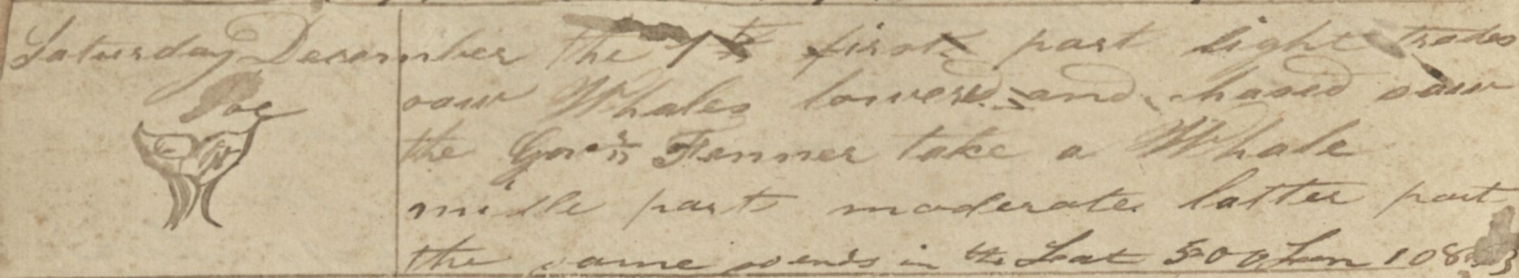 Saturday December the 7th first part light trades
saw Whales lowered and chased saw
the Gov'n Fenner take a Whale
midle parts moderate latter part
the same so ends in the Lat 500 Lon 108